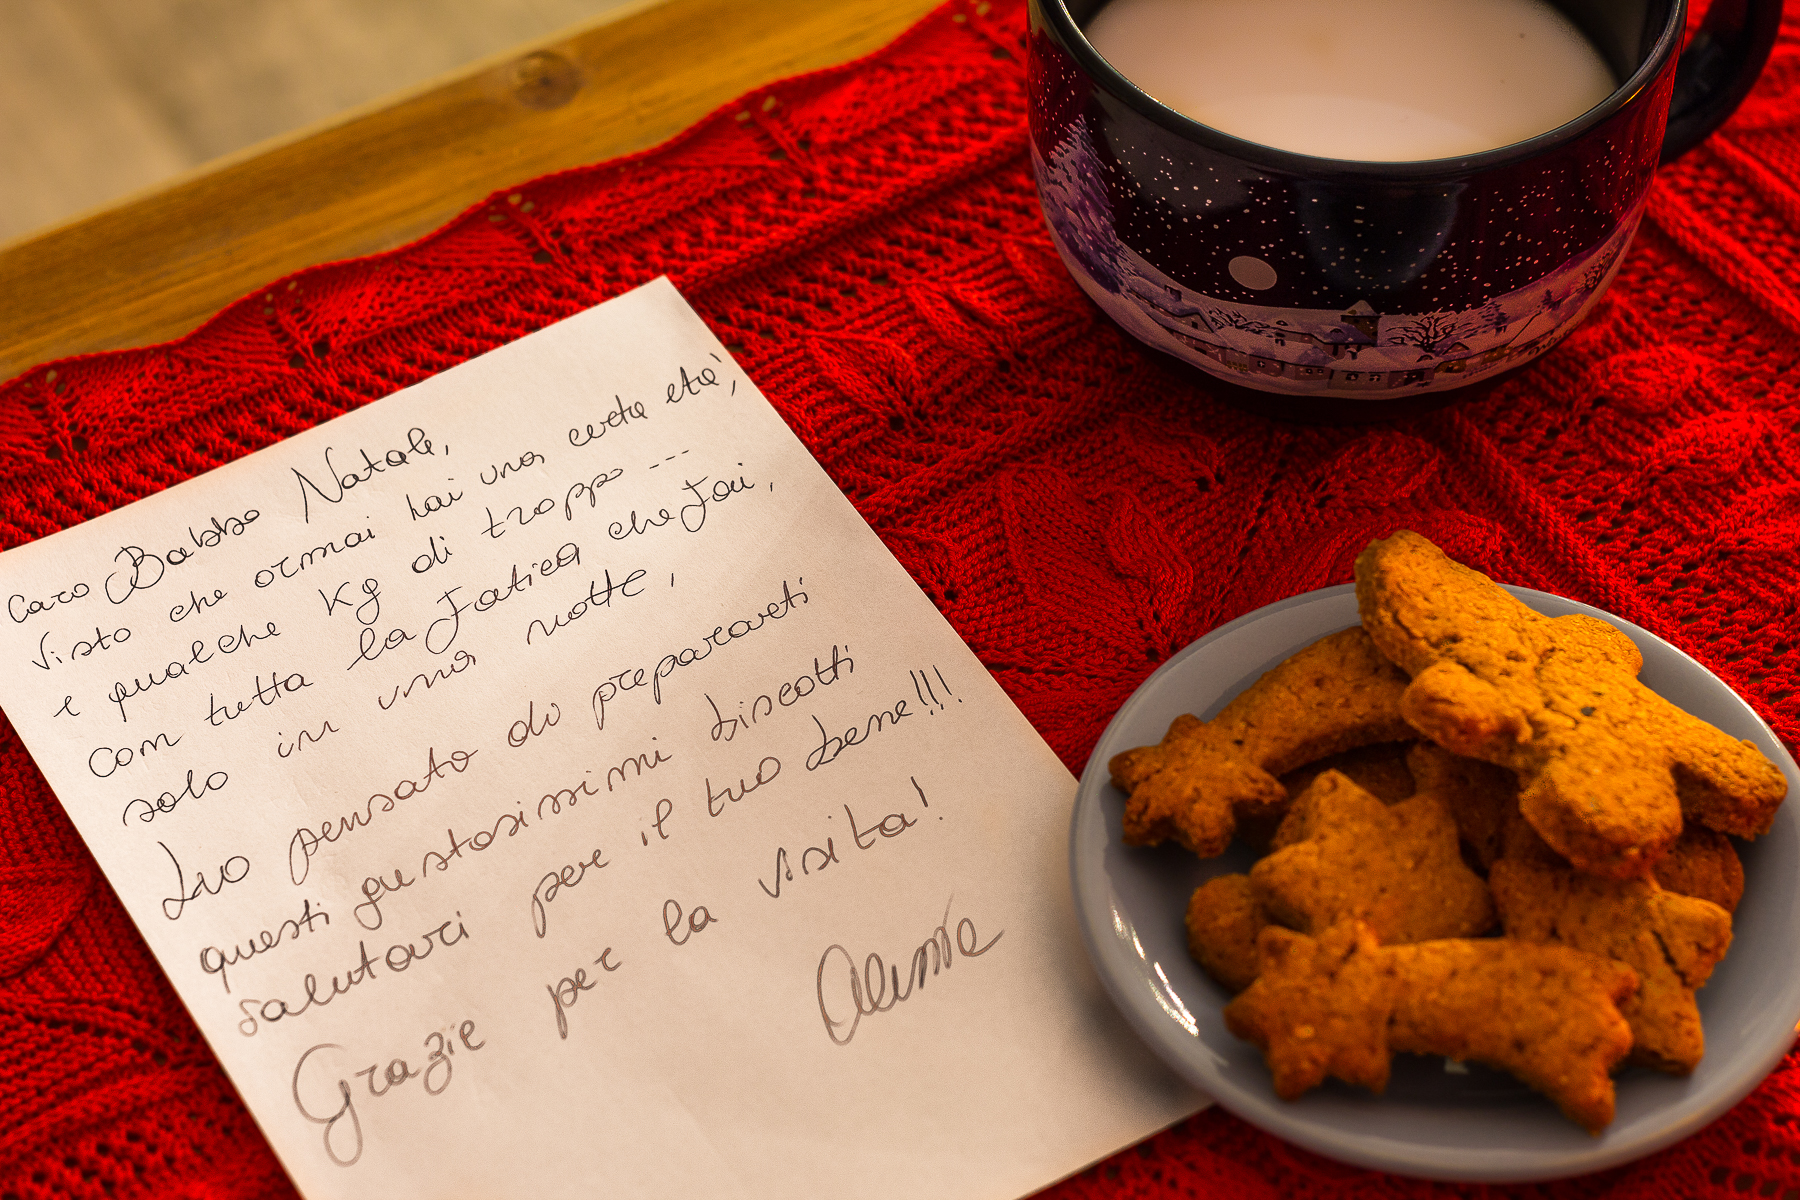 Caro Babbo Natale,
Visto che ormai hai una certa età,
e qualche Kg di troppo ---
con tutta la fatica che fai,
solo in una notte,
ho pensato di prepararti
questi gustosissimi biscotti
salutari per il tuo bene!!!
Grazie per la visita!